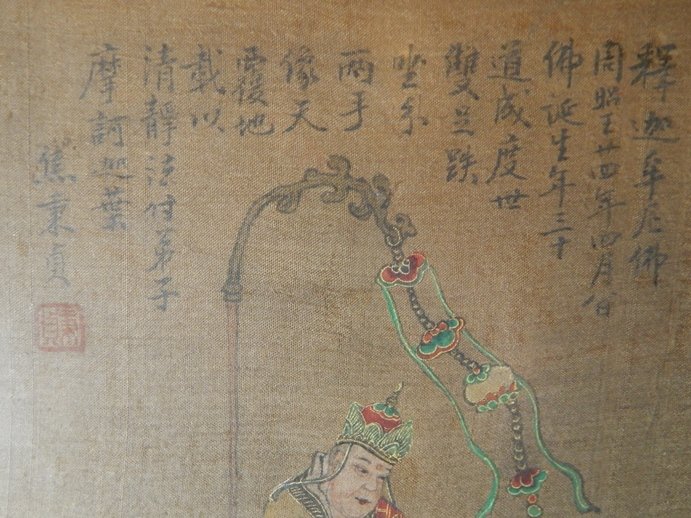 釋迦牟尼佛
周昭王廿四年四月八日
佛誕生年三十
道成度世
雙足趺
坐手
兩手
像天
覆地
載以
清靜法付弟子
摩訶迦葉
焦秉貞